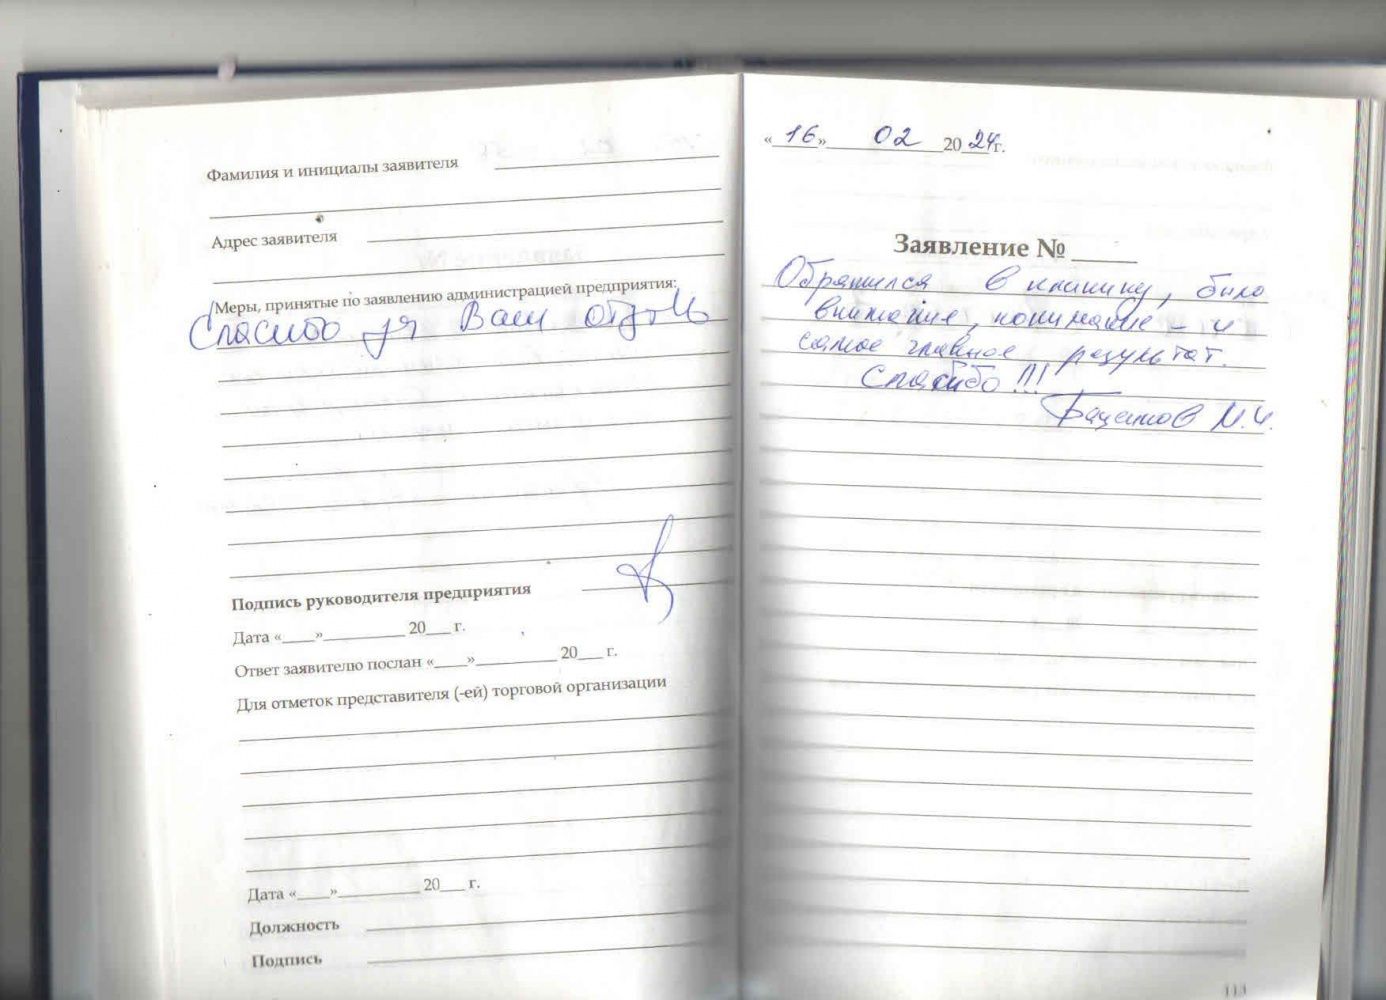 Фамилия и инициалы заявителя
Адрес заявителя
Меры, принятые по заявлению администрацией предприятия:
Спасибо за Ваш отзыв
Подпись руководителя предприятия
Дата «____»__________ 20___ г.
Ответ заявителю послан «____»__________ 20___ г.
Для отметок представителя (-ей) торговой организации
Дата «____»__________ 20___ г.
Должность
Подпись
«16» 02 2024г.
Заявление № _____
Обратился в клинику, было
внимание, понимание – и
самое главное результат.
Спасибо !!!
М.И.
113